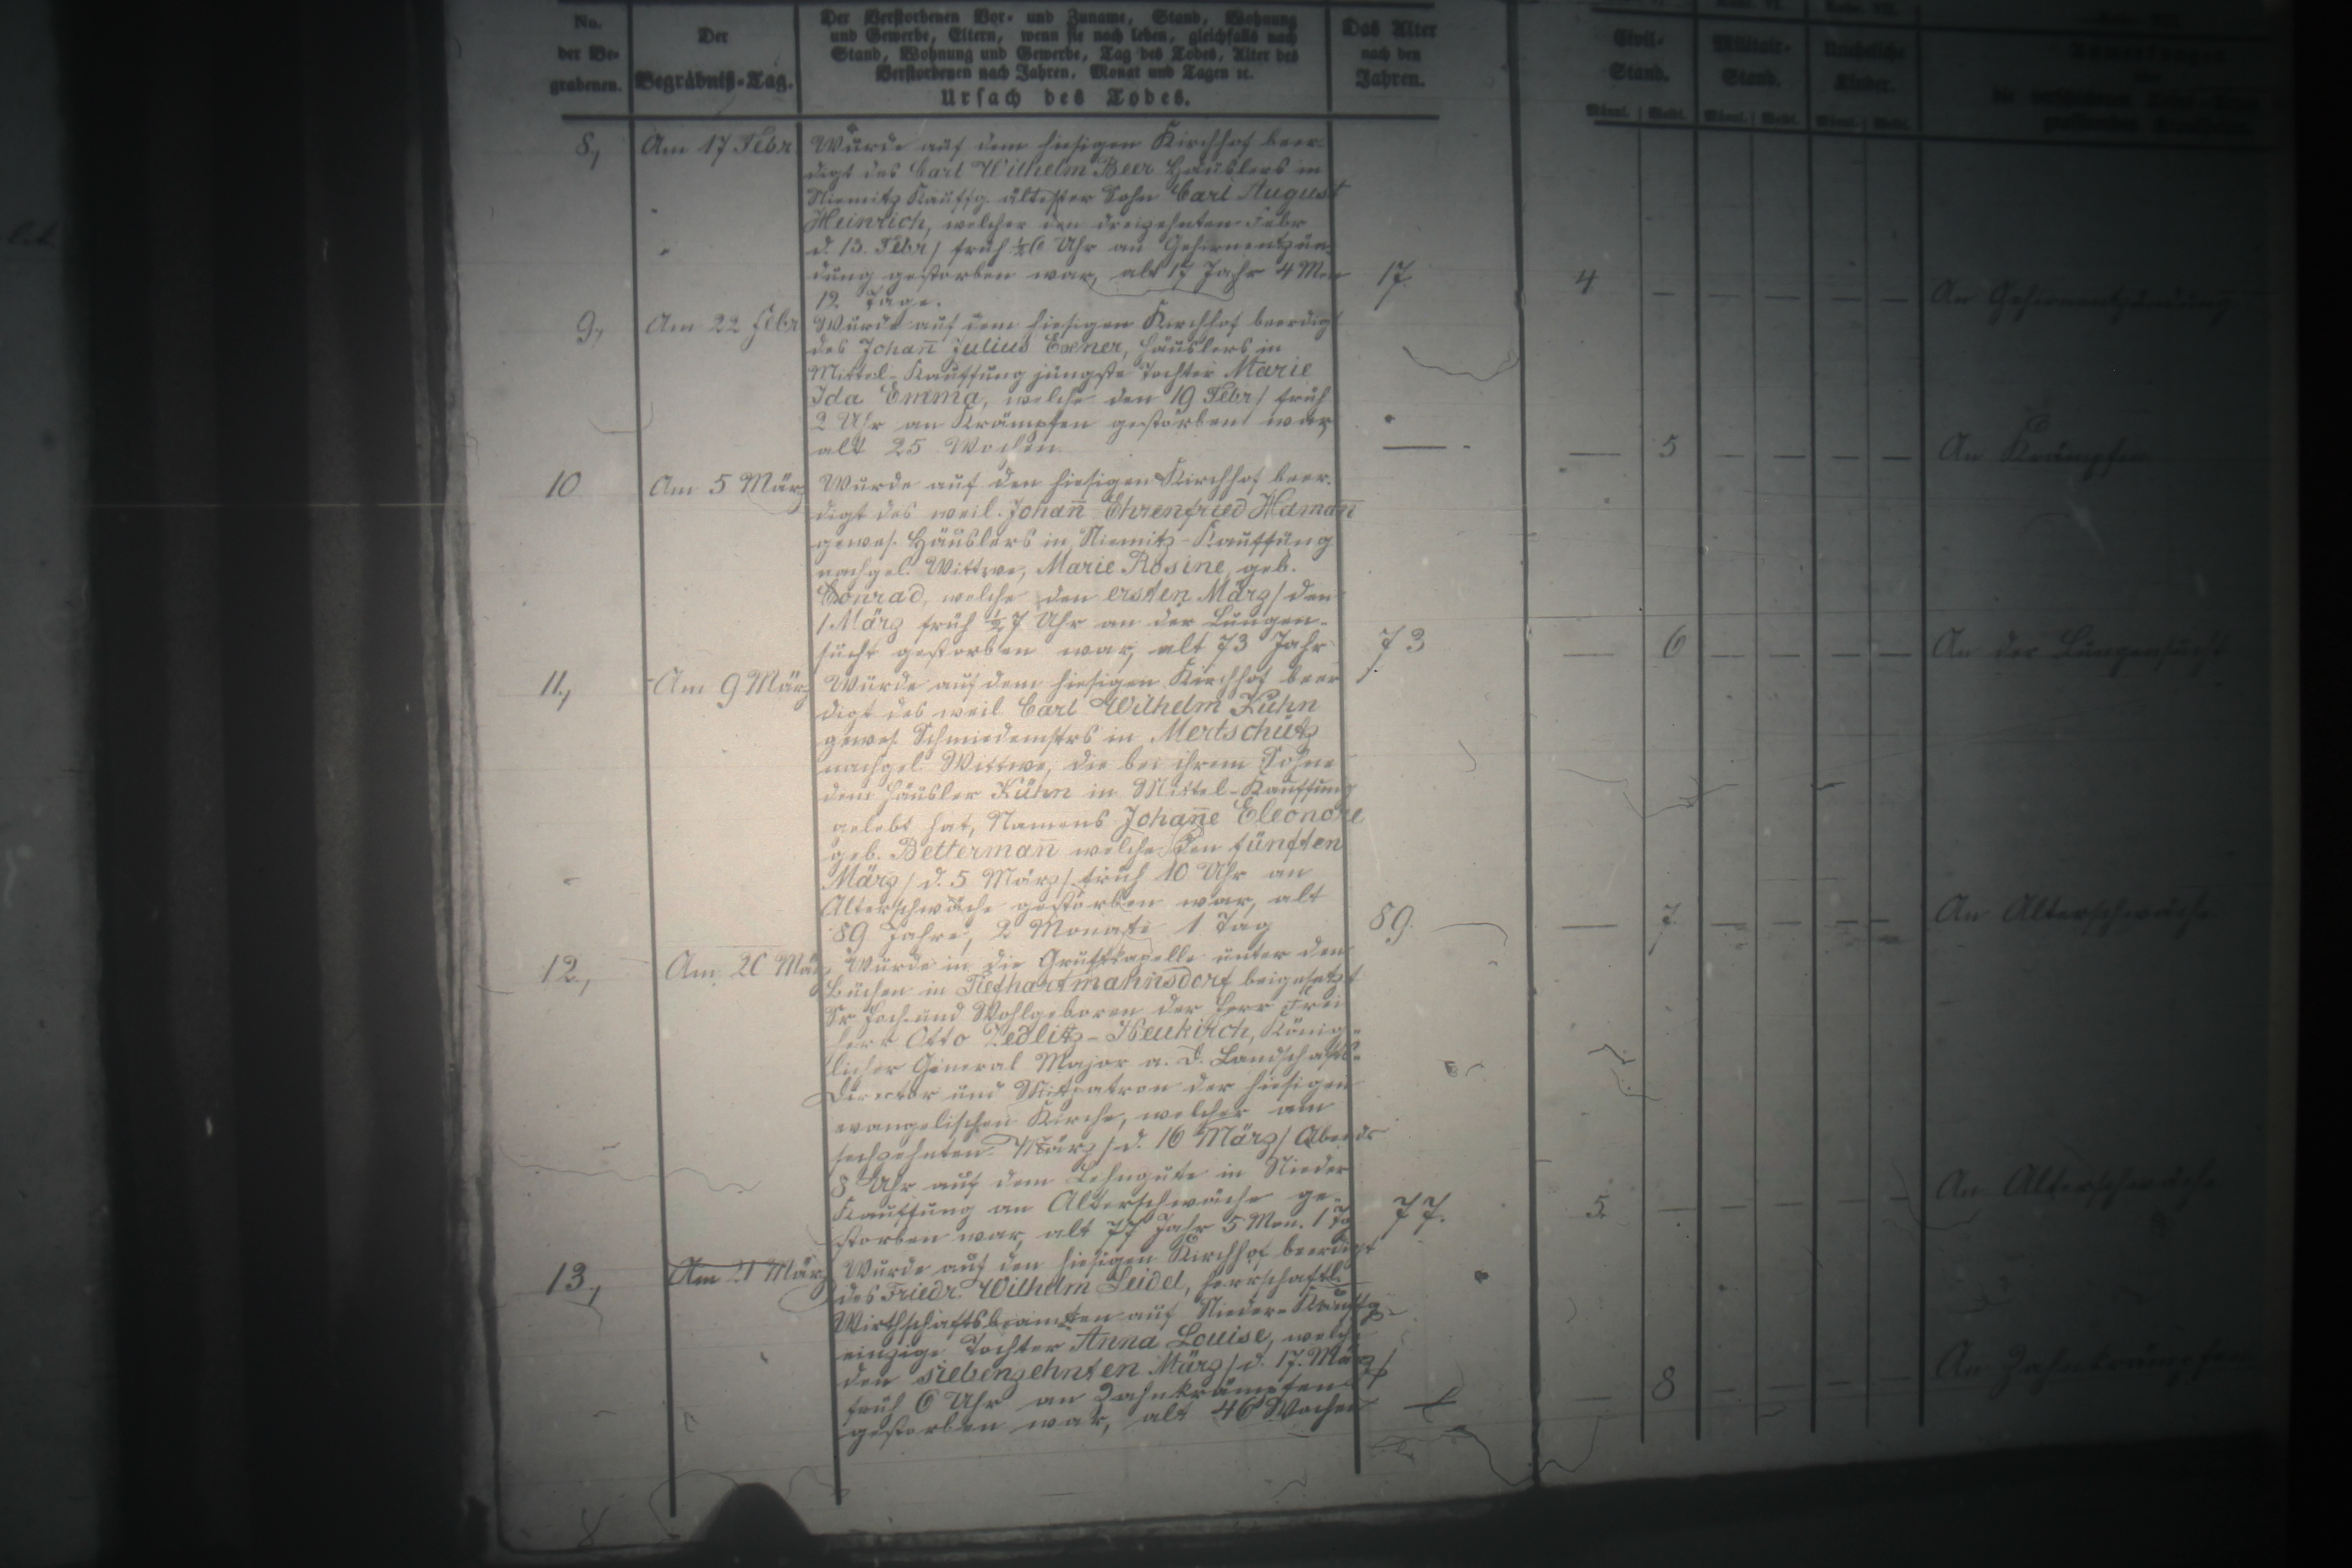 No.
der Be-
grabenen.
Der
Begräbniß-Tag.
Der Verstorbenen Vor- und Zuname, Stand, Wohnung
und Gewerbe, Eltern, wenn sie noch leben, gleichfalls nach
Stand, Wohnung und Gewerbe, Tag des Todes, Alter des
Verstorbenen nach Jahren, Monat und Tagen ꝛc.
Ursach des Todes.
Das Alter
nach den
Jahren.
Civil-
Stand.
Militair-
Stand.
Kinder.
Männl. | Weibl. Männl. | Weibl. Männl. | Weibl.
8, Am 17 Febr Wurde auf dem hiesigen Kirchhof beer-
digt des Carl Wilhelm Beer Häuslers in
Niemitz Kauffg. ältester Sohn Carl August
Heinrich, welcher den dreizehnten Febr
d. 13. Febr/ früh ½6 Uhr an Gehirnentzün-
dung gestorben war, alt 17 Jahr 4 Mon 17. 4 — — — — — An Gehirnentzündung
12 Tage.
9, Am 22 Febr Wurde auf dem hiesigen Kirchhof beerdigt
des Johan̄ Julius Exner, Häuslers in
Mittel-Kauffung jüngste Tochter Marie
Ida Emma, welche den 19 Febr/ früh
2 Uhr an Krämpfen gestorben war,
alt 25 Wochen — — 5 — — — — An Krämpfen
10 Am 5 März Wurde auf den hiesigen Kirchhof beer-
digt des weil. Johan̄ Ehrenfried Haman̄
gewes. Häuslers in Niemitz-Kauffung
nachgel. Wittwe, Marie Rosine, geb.
Conrad, welche den ersten März/ den
1 März früh ½7 Uhr an der Lungen-
sucht gestorben war, alt 73 Jahr 73 — 6 — — — — An der Lungensucht
11, Am 9 März Wurde auf dem hiesigen Kirchhof beer
digt des weil Carl Wilhelm Kuhn
gewes. Schmiedemstrs in Mertschütz
nachgel. Wittwe, die bei ihrem Sohne
dem Häusler Kühn in Mittel-Kauffung
gelebt hat, Namens Johan̄e Eleonore
geb. Betterman̄ welche den fünften
März/ d. 5 März/ früh 10 Uhr an
Alterschwäche gestorben war, alt
89 Jahre, 2 Monate 1 Tag 89. — 7. — — — — An Alterschwäche
12, Am 20 März Wurde in die Gruftkapelle unter den
Buchen in Tiefhartmannsdorf beigesetzt
Sr Hoch und Wohlgeboren der Herr Frei
herr Otto Zedlitz-Neukirch, König-
licher General Major a. D. Landschafts-
Director und Mitpatron der hiesigen
evangelischen Kirche, welcher am
sechzehnten März/ d. 16 März/ Abends
8 Uhr auf dem Lehngute in Nieder
Kauffung an Alterschwäche ge-
storben war, alt 77 Jahr 5 Mon. 1 Tg 77. 5. — — — — — An Alterschwäche
13, Am 21 März Wurde auf den hiesigen Kirchhof beerdigt
des Friedr. Wilhelm Seidel, herrschaftl.
Wirthschaftsbeamten auf Nieder-Kauffg
einzige Tochter Anna Louise, welche
den siebenzehnten März/ d. 17. März/
früh 6 Uhr an Zahnkrämpfen
gestorben war, alt 46 Wochen — — 8 — — — — An Zahnkrämpfen